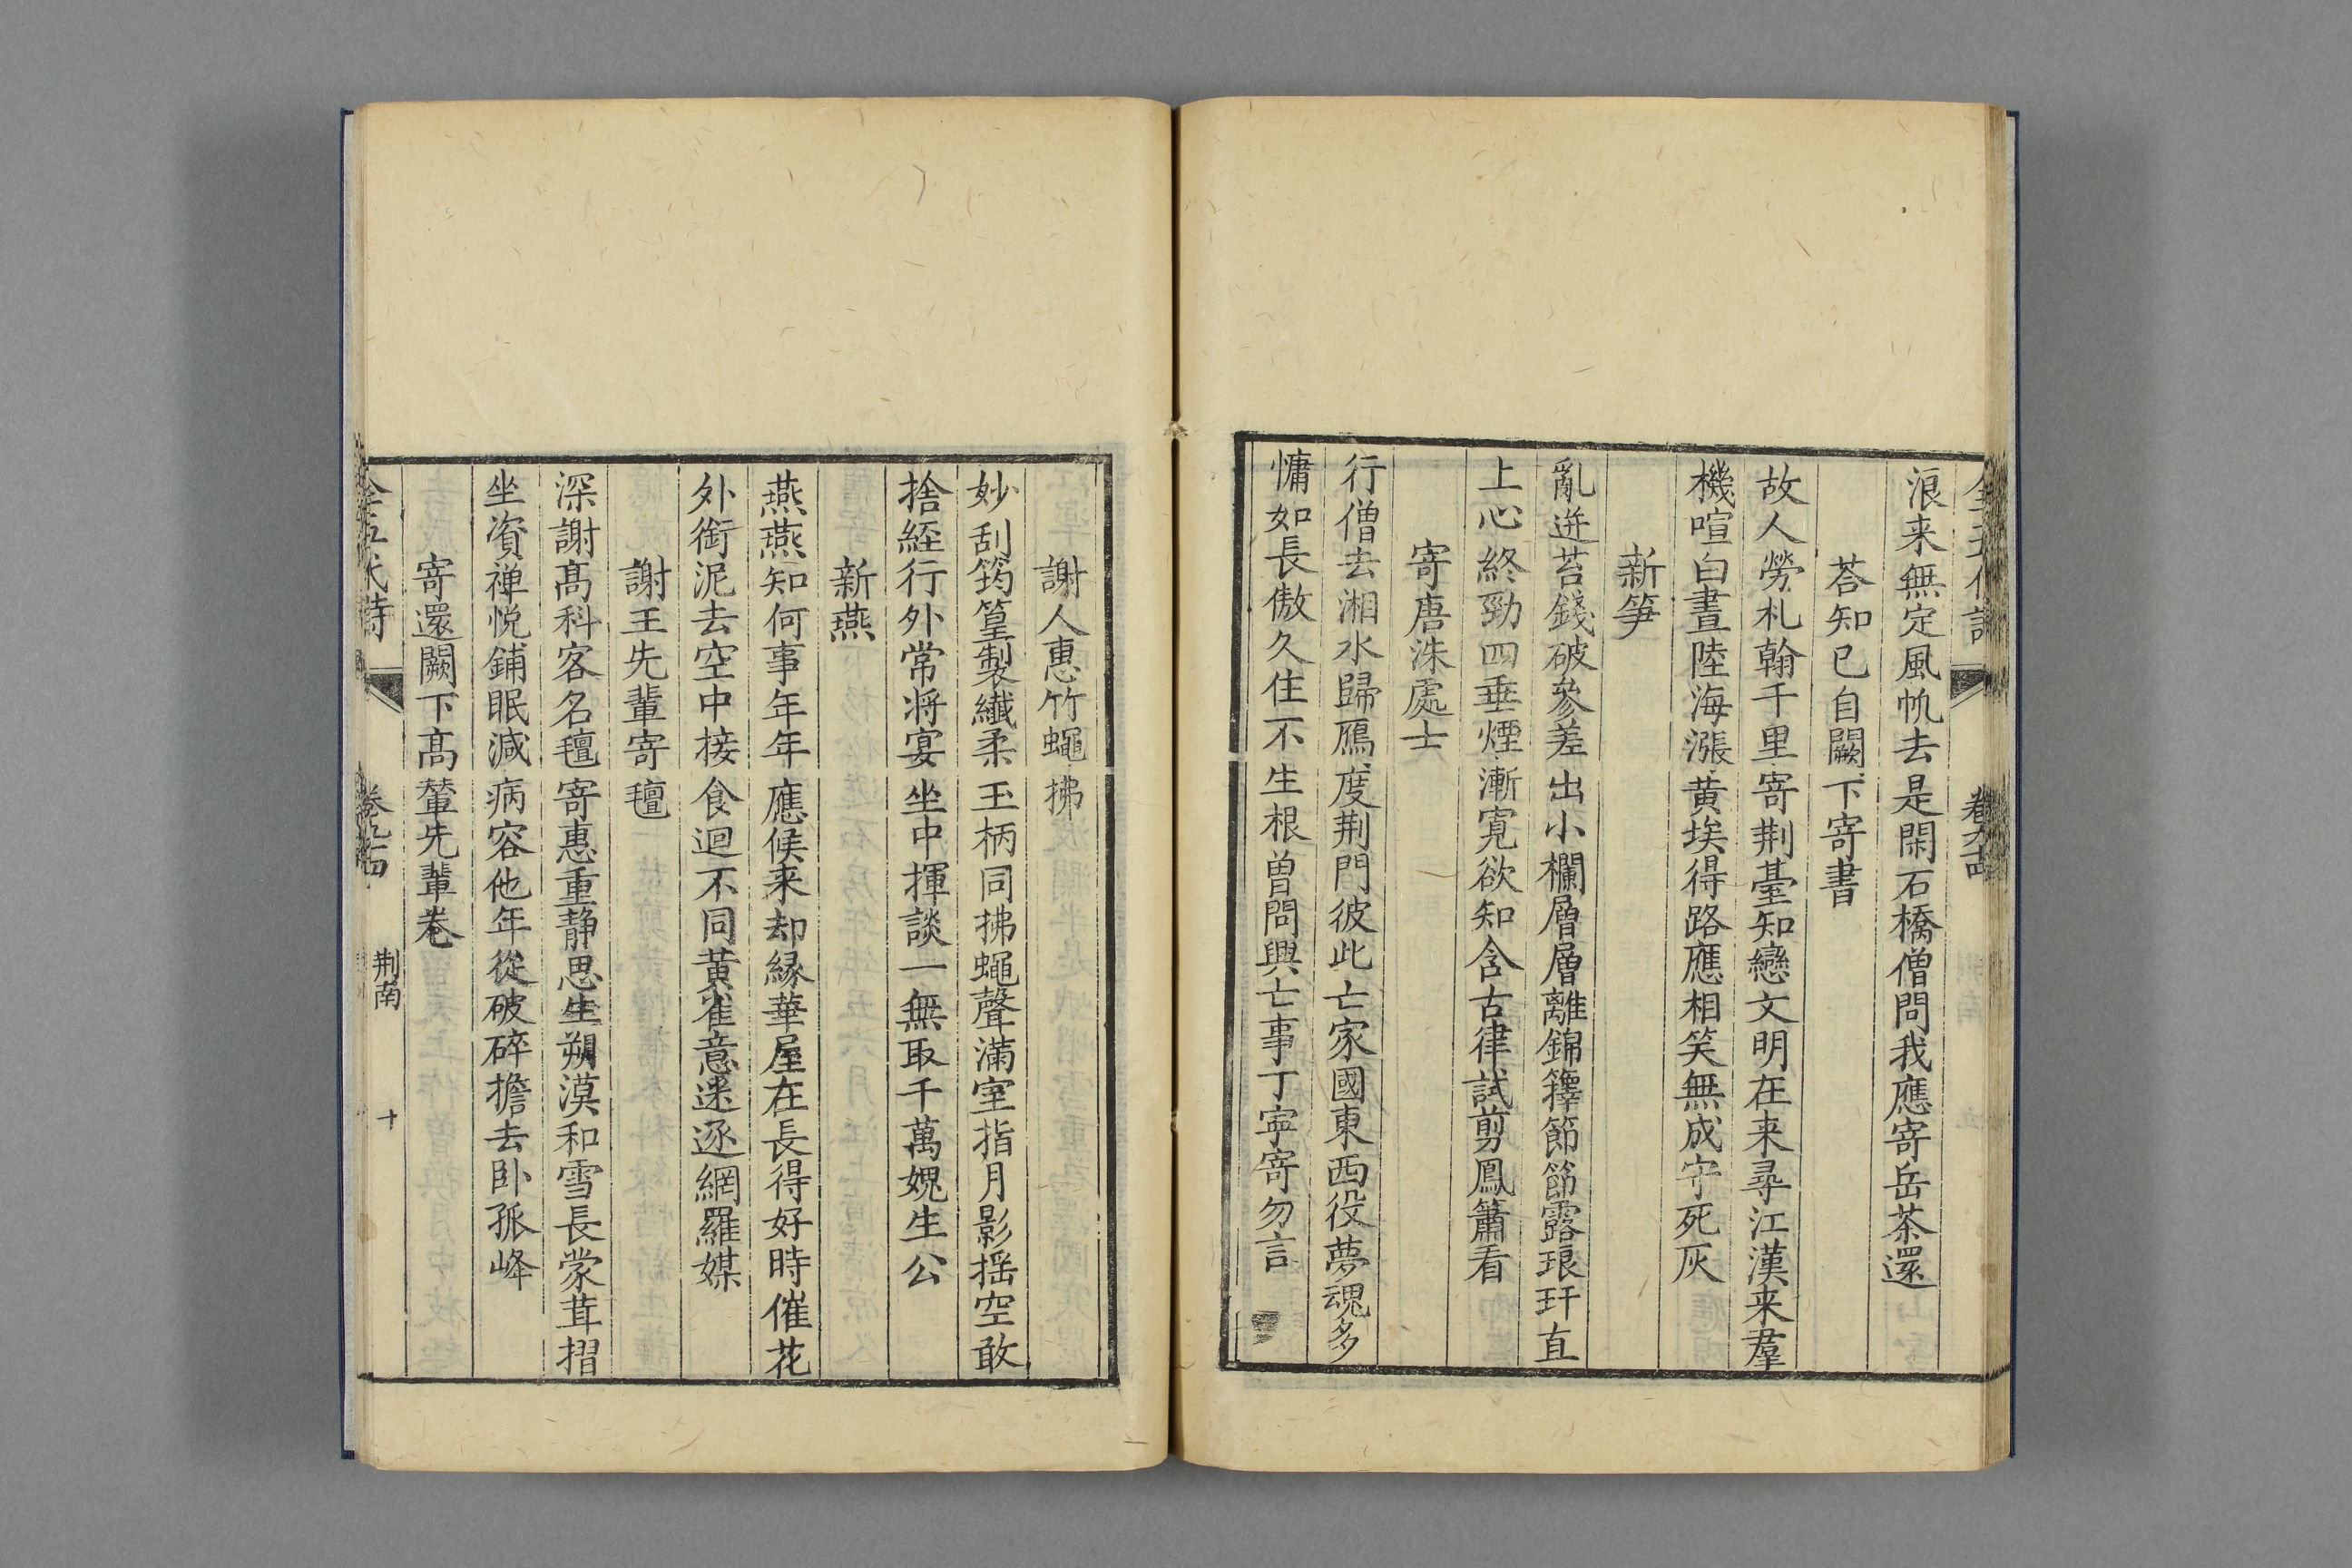 浪来無定風帆去是閑石橋僧問我應寄岳茶還
荅知已自闕下寄書
故人勞札翰千里寄荆臺知戀文明在来尋江漢来羣
機喧白晝陸海漲黄埃得路應相笑無成守死灰
新笋
亂迸苔錢破參差出小欄層層離錦籜節節露琅玕直
上心終勁四垂煙漸寛欲知含古律試剪鳳簫看
寄唐洙處士
行僧去湘水歸鴈度荆門彼此亡家國東西役夢魂多
慵如長傲久住不生根曽問興亡事丁寜寄勿言
謝人惠竹蠅拂
妙刮筠篁製纖柔玉柄同拂蠅聲滿室指月影揺空敢
捨經行外常将宴坐中揮談一無取千萬媿生公
新燕
燕燕知何事年年應候来却縁華屋在長得好時催花
外銜泥去空中接食迴不同黄雀意迷逐網羅媒
謝王先輩寄氊
深謝髙科客名氊寄惠重静思生朔漠和雪長蒙茸摺
坐資禅悦鋪眠減病容他年從破碎擔去卧孤峰
寄還闕下髙輦先輩卷
荆南
十